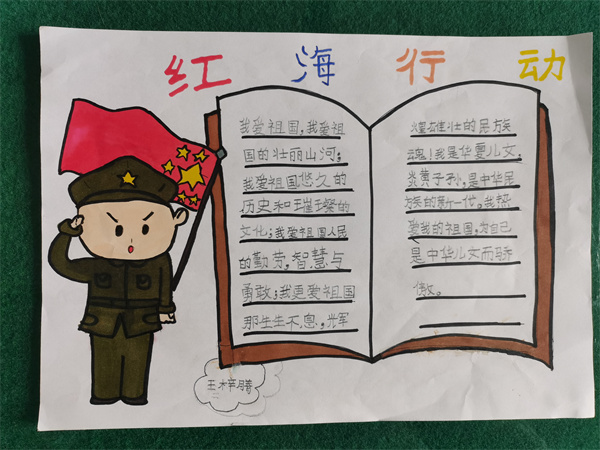 红海行动
我爱祖国，我爱祖
国的壮丽山河；
我爱祖国悠久的
历史和璀璨的
文化；我爱祖国人民
的勤劳，智慧与
勇敢；我更爱祖国
那生生不息，光军
煌雄壮的民族
魂！我是华夏儿女，
炎黄子孙，是中华民
族的新一代。我热
爱我的祖国，为自己
是中华儿女而骄
傲。
王